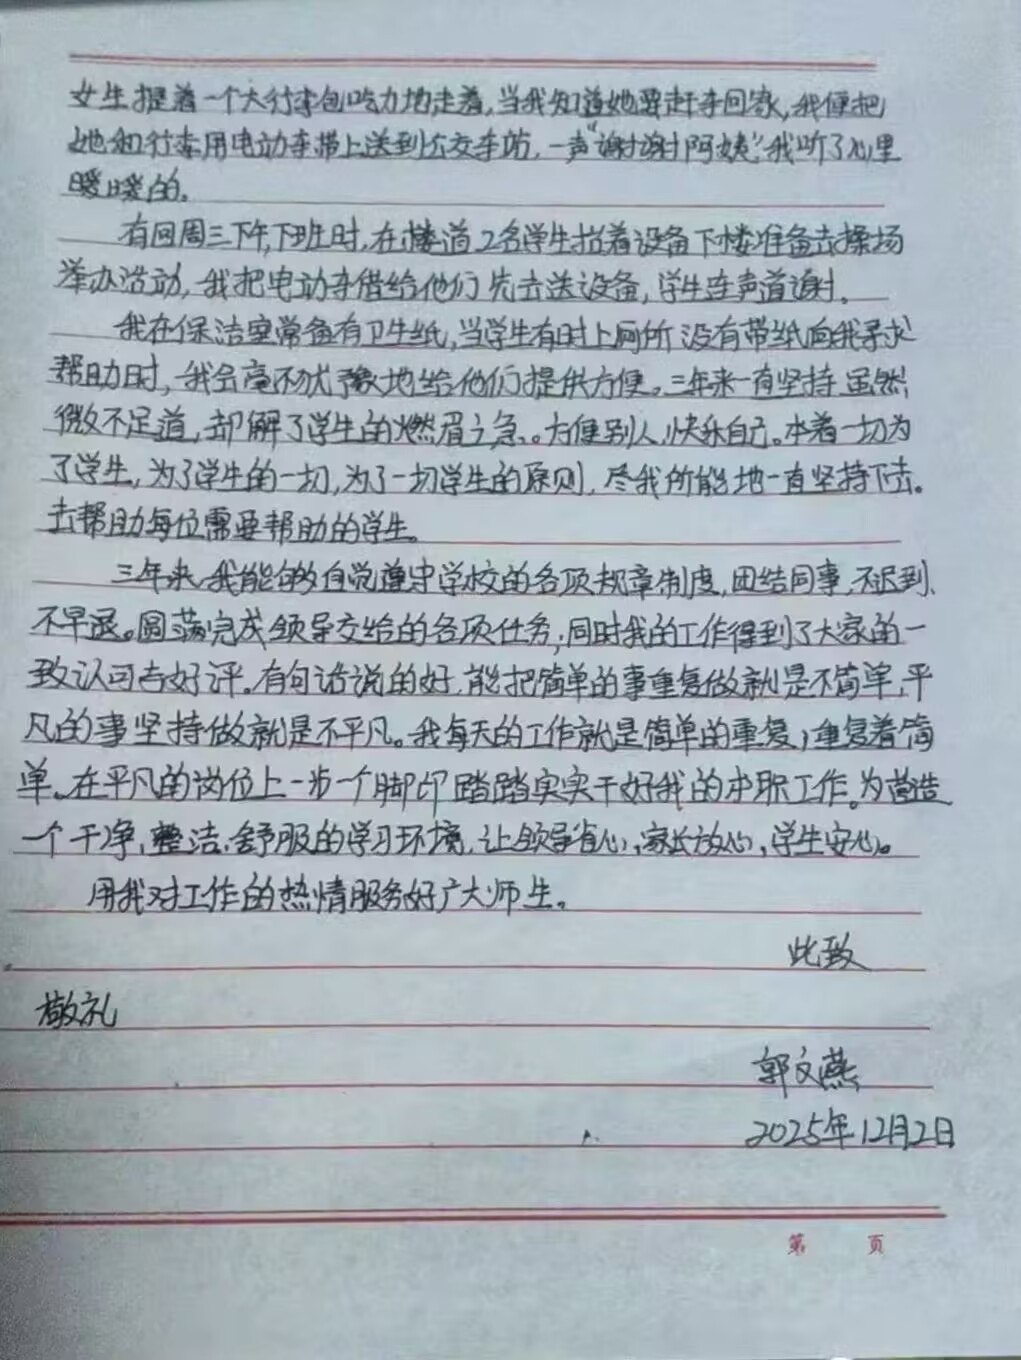 女生提着一个大行李包吃力地走着,当我知道她要赶车回家,我便把
她和行李用电动车带上送到公交车站,一声“谢谢阿姨”我听了心里
暖暖的。
有回周三下午,下班时,在楼道2名学生抬着设备下楼准备去操场
举办活动,我把电动车借给他们先去送设备,学生连声道谢。
我在保洁室常备有卫生纸,当学生有时上厕所没有带纸向我寻求
帮助时,我会毫不犹豫地给他们提供方便。三年来一直坚持虽然
微不足道,却解了学生的燃眉之急。方便别人,快乐自己。本着一切为
了学生,为了学生的一切,为了一切学生的原则,尽我所能地一直坚持下去。
去帮助每位需要帮助的学生。
三年来,我能够自觉遵守学校的各项规章制度,团结同事,不迟到、
不早退。圆满完成领导交给的各项任务,同时我的工作得到了大家的一
致认可与好评。有句话说的好,能把简单的事重复做就是不简单,平
凡的事坚持做就是不平凡。我每天的工作就是简单的重复,重复着简
单。在平凡的岗位上一步一个脚印踏踏实实干好我的本职工作。为营造
一个干净,整洁,舒服的学习环境,让领导省心,家长放心,学生安心。
用我对工作的热情服务好广大师生。
此致
敬礼
郭文燕
2025年12月2日
第 页